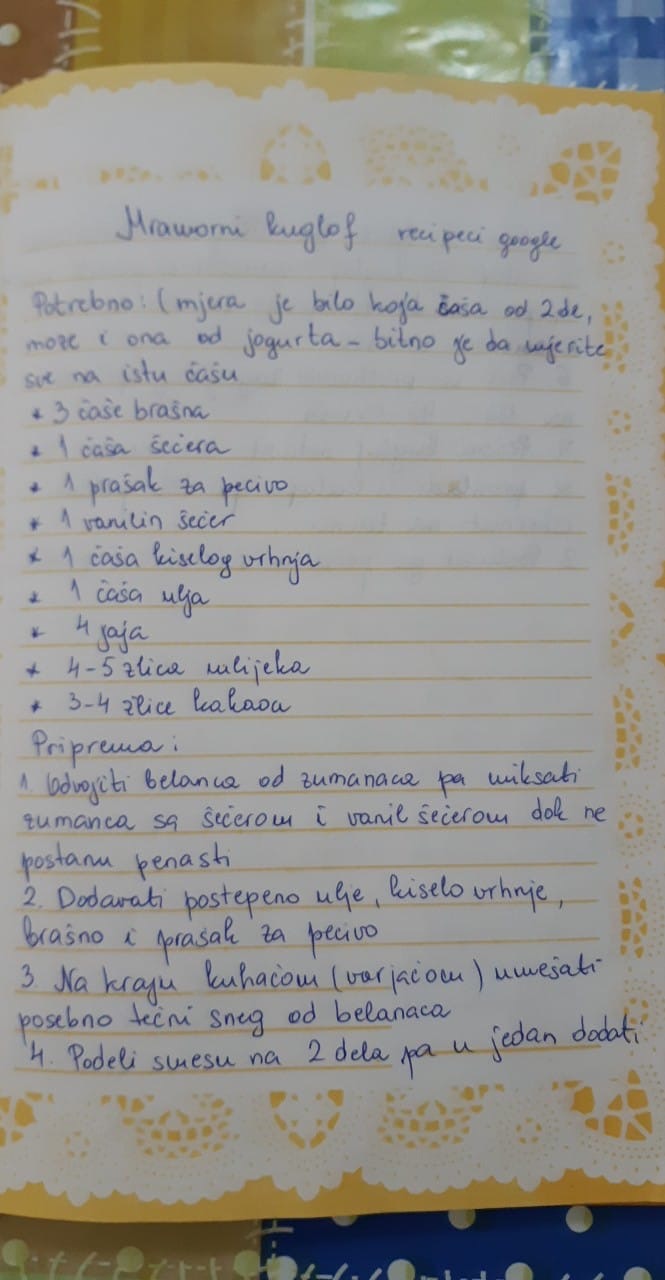 Mramorni kuglof recipeci google
Potrebno: (mjera je bilo koja čaša od 2de,
može i ona od jogurta - bitno je da mjerite
sve na istu čašu
* 3 čaše brašna
* 1 čaša šećera
* 1 prašak za pecivo
* 1 vanilin šećer
* 1 čaša kiselog vrhnja
* 1 čaša ulja
* 4 jaja
* 4-5 žlica mlijeka
* 3-4 žlice kakaoa
Priprema:
1. Odvojiti belanca od žumanaca pa miksati
žumanca sa šećerom i vanil šećerom dok ne
postanu penasti
2. Dodavati postepeno ulje, kiselo vrhnje,
brašno i prašak za pecivo
3. Na kraju kuhačom (varjačom) umešati
posebno tečni sneg od belanaca
4. Podeli smesu na 2 dela pa u jedan dodati